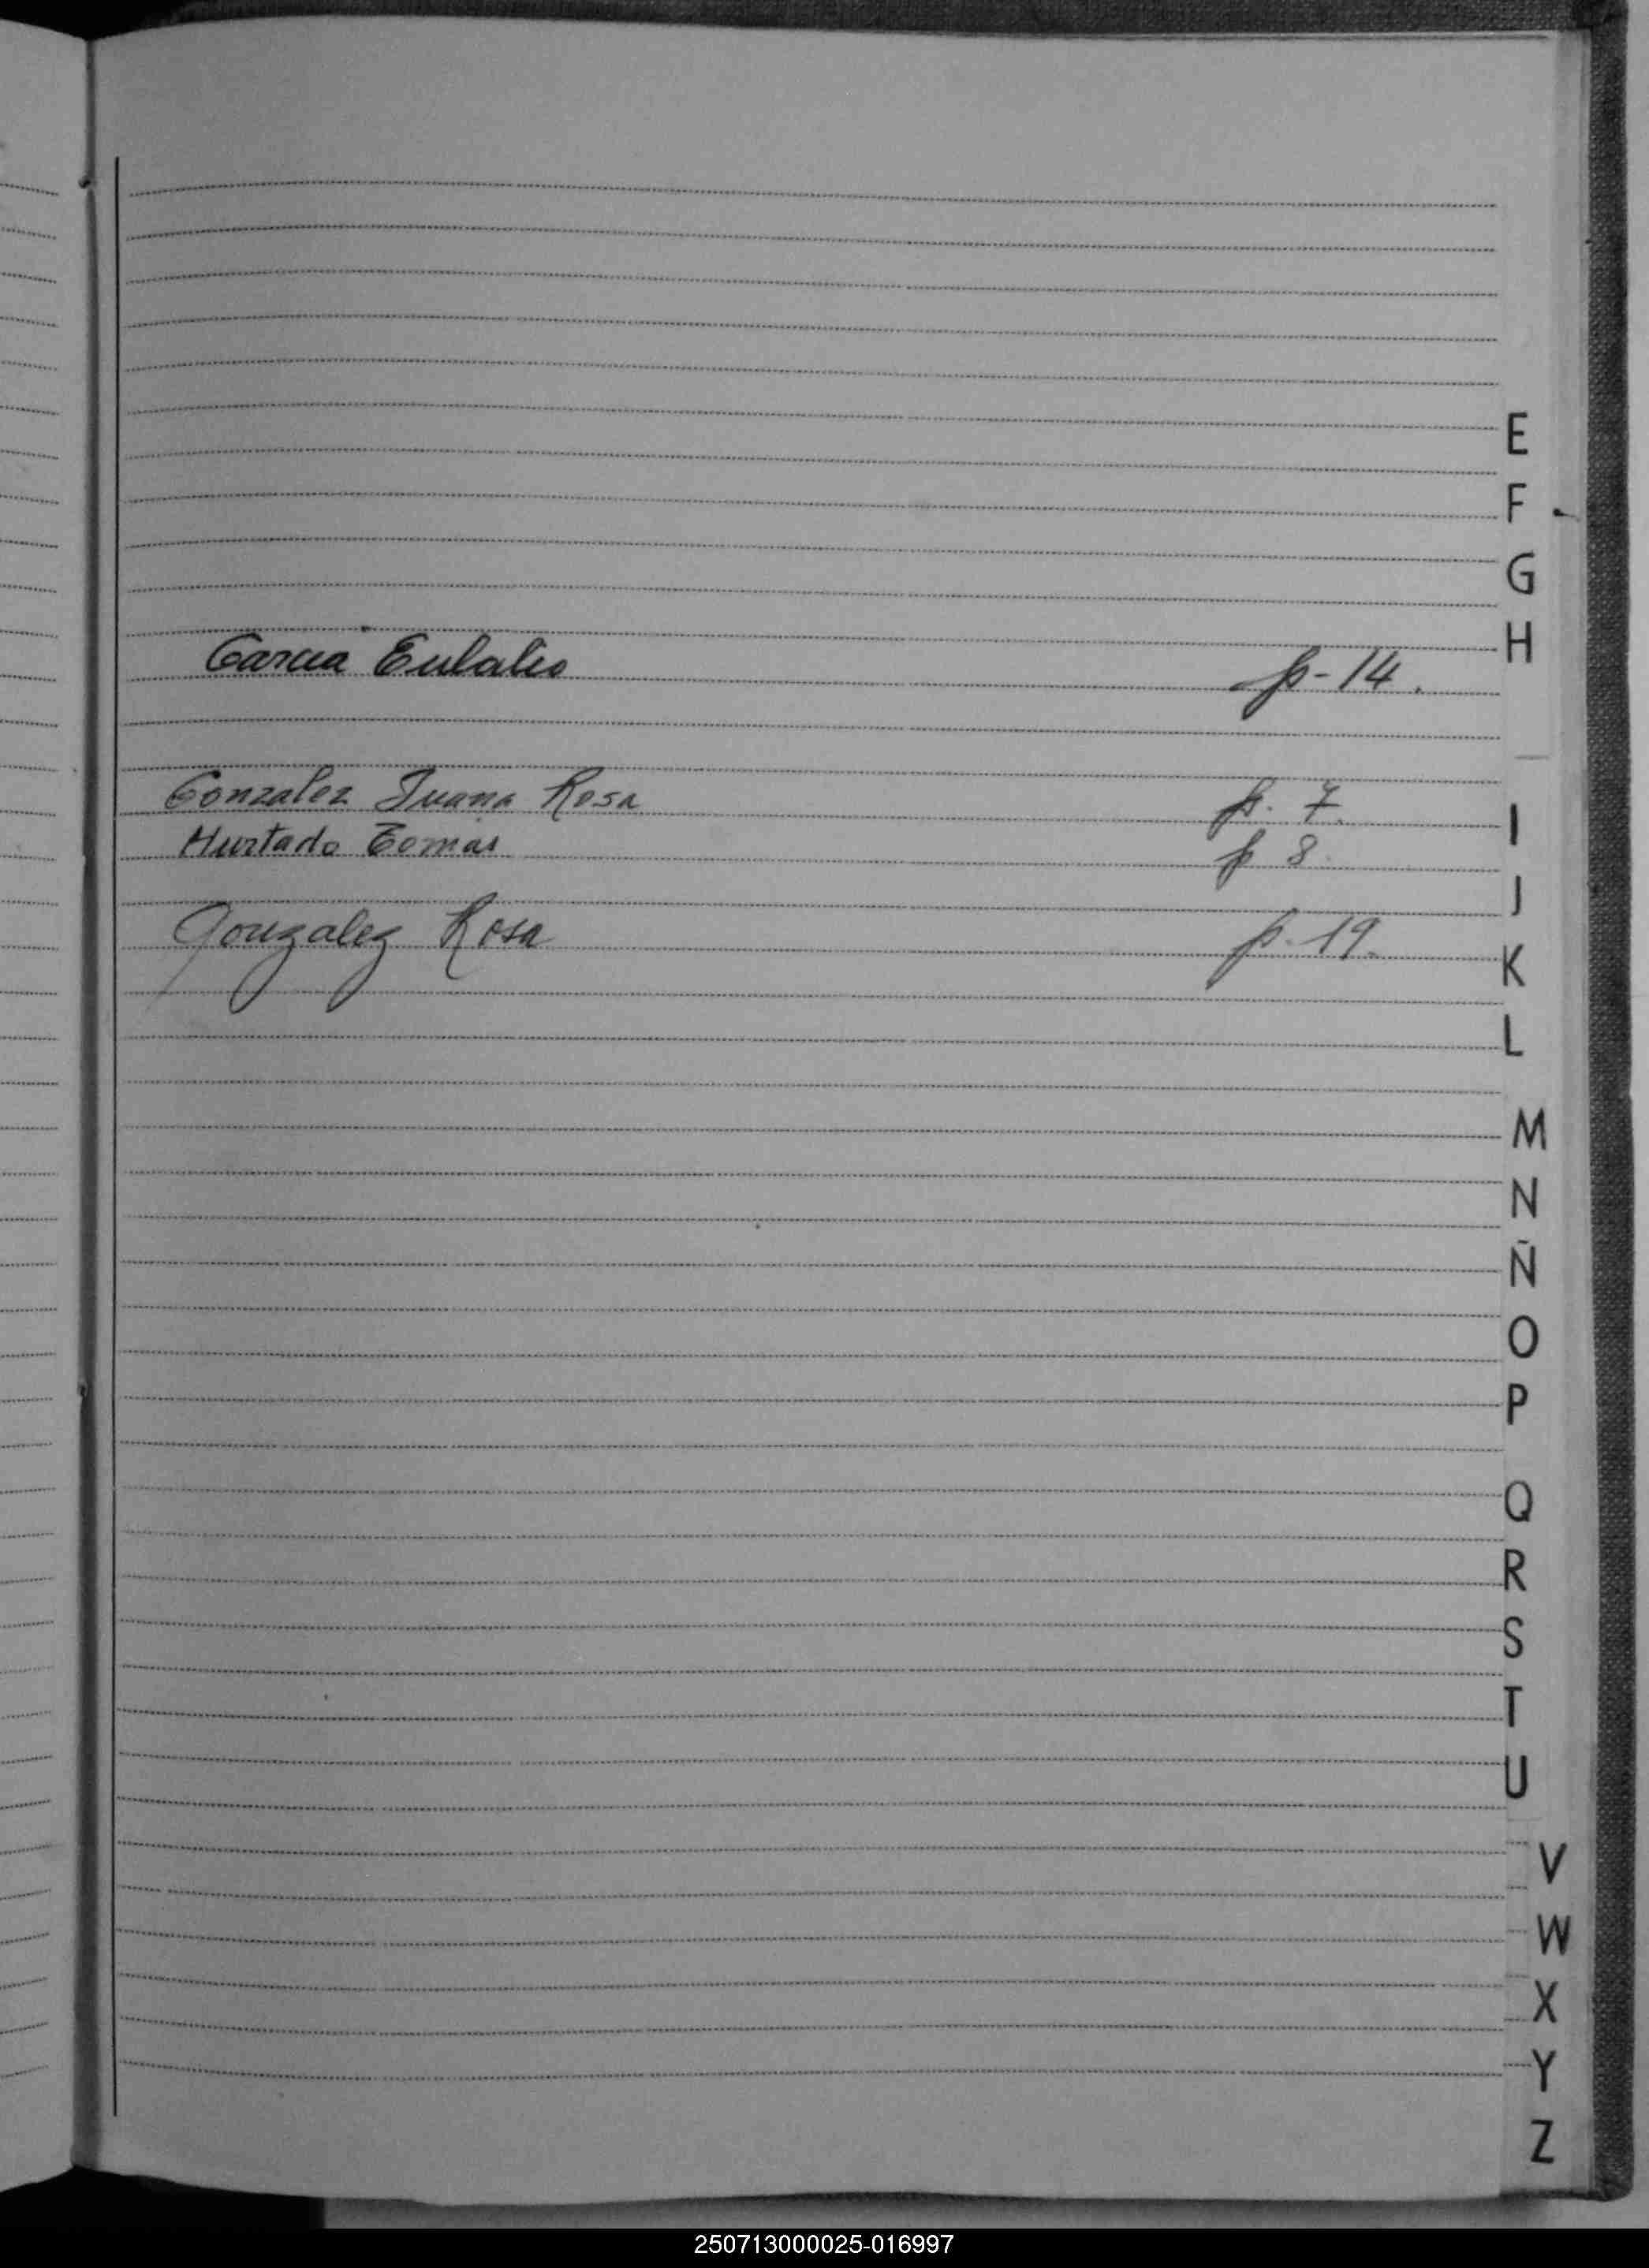 E
F
G
Garcia Eulalio p-14.
H
Gonzalez Juana Rosa p. 7.
I
Hurtado Tomás p 8
J
Gonzalez Rosa p. 19.
K
L
M
N
Ñ
O
P
Q
R
S
T
U
V
W
X
Y
Z
250713000025-016997